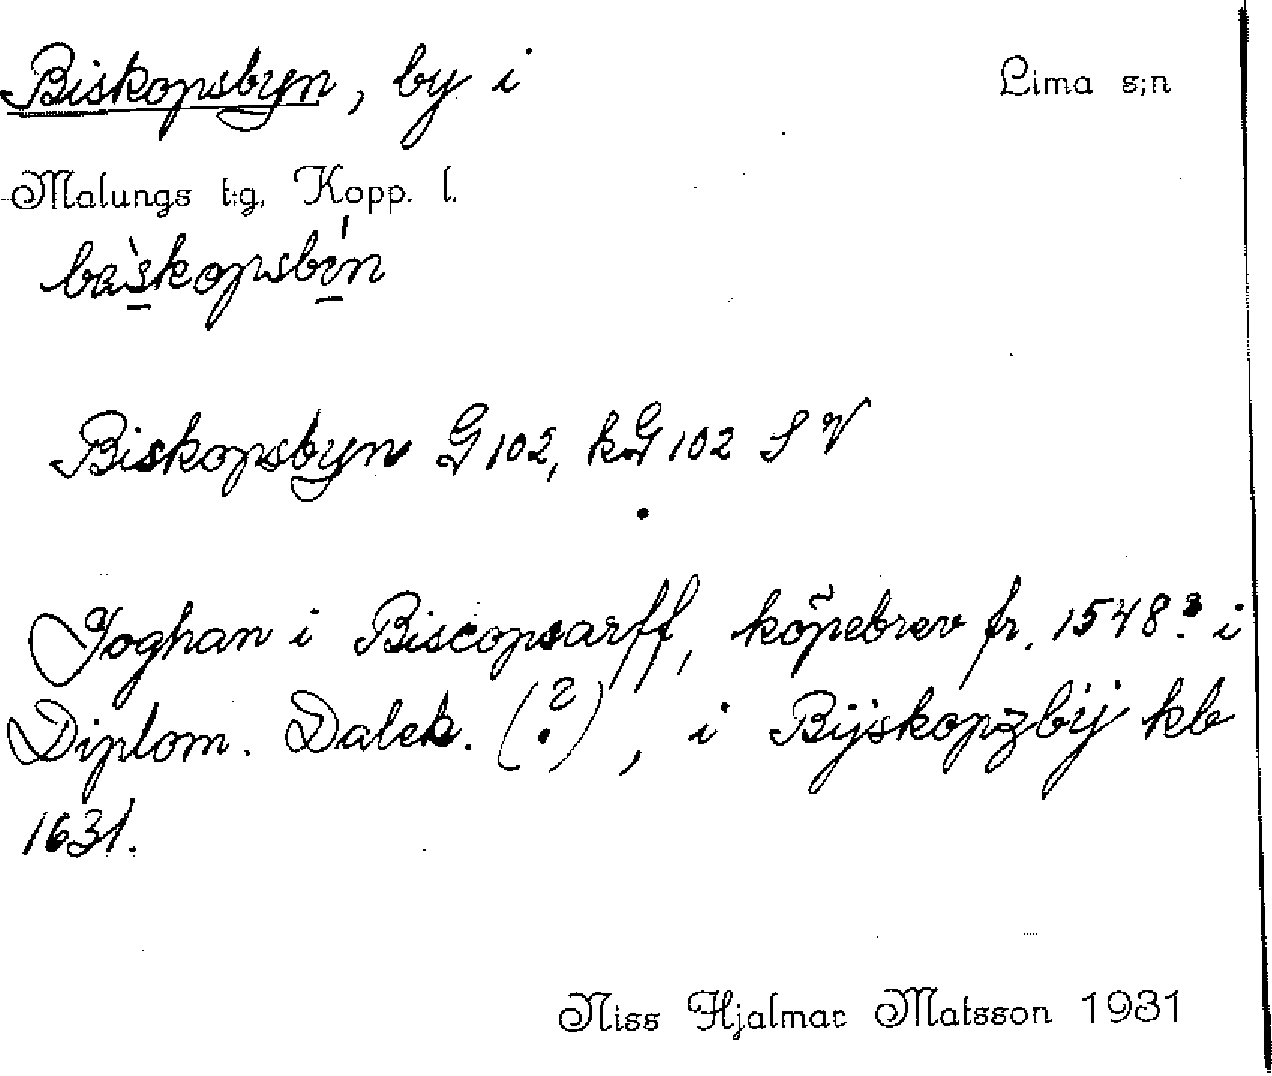 Biskopsbyn, by i Lima s;n
Malungs t:g, Kopp. l.
Biskopsbyn G 102, kG 102 S V
Joghan i Biscopsarff, köpebrev fr. 1548? i
Diplom. Dalek. (?), i Bijskopzbij kb
1631.
Niss Hjalmar Matsson 1931